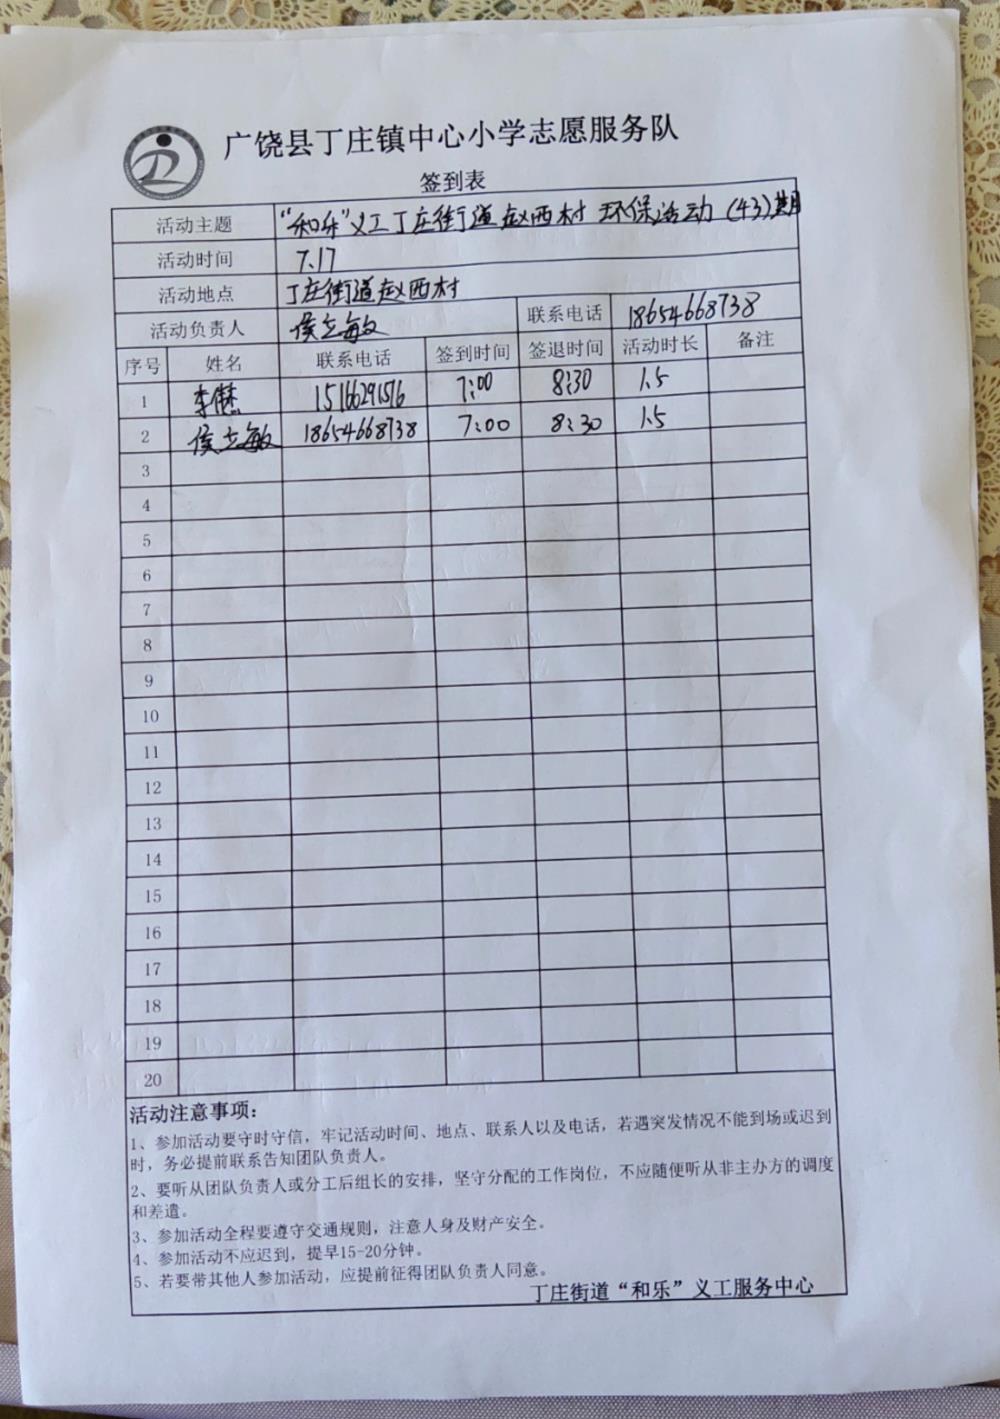 广饶县丁庄镇中心小学志愿服务队
签到表
活动主题 “和乐”义工丁庄街道赵西村 环保活动(43)期
活动时间 7.17
活动地点 丁庄街道赵西村
活动负责人 侯立敏 联系电话 18654668738
序号 姓名 联系电话 签到时间 签退时间 活动时长 备注
1 李 15166291576 7:00 8:30 1.5
2 侯立敏 18654668738 7:00 8:30 1.5
3
4
5
6
7
8
9
10
11
12
13
14
15
16
17
18
19
20
活动注意事项:
1、参加活动要守时守信,牢记活动时间、地点、联系人以及电话,若遇突发情况不能到场或迟到
时,务必提前联系告知团队负责人。
2、要听从团队负责人或分工后组长的安排,坚守分配的工作岗位,不应随便听从非主办方的调度
和差遣。
3、参加活动全程要遵守交通规则,注意人身及财产安全。
4、参加活动不应迟到,提早15-20分钟。
5、若要带其他人参加活动,应提前征得团队负责人同意。
丁庄街道“和乐”义工服务中心